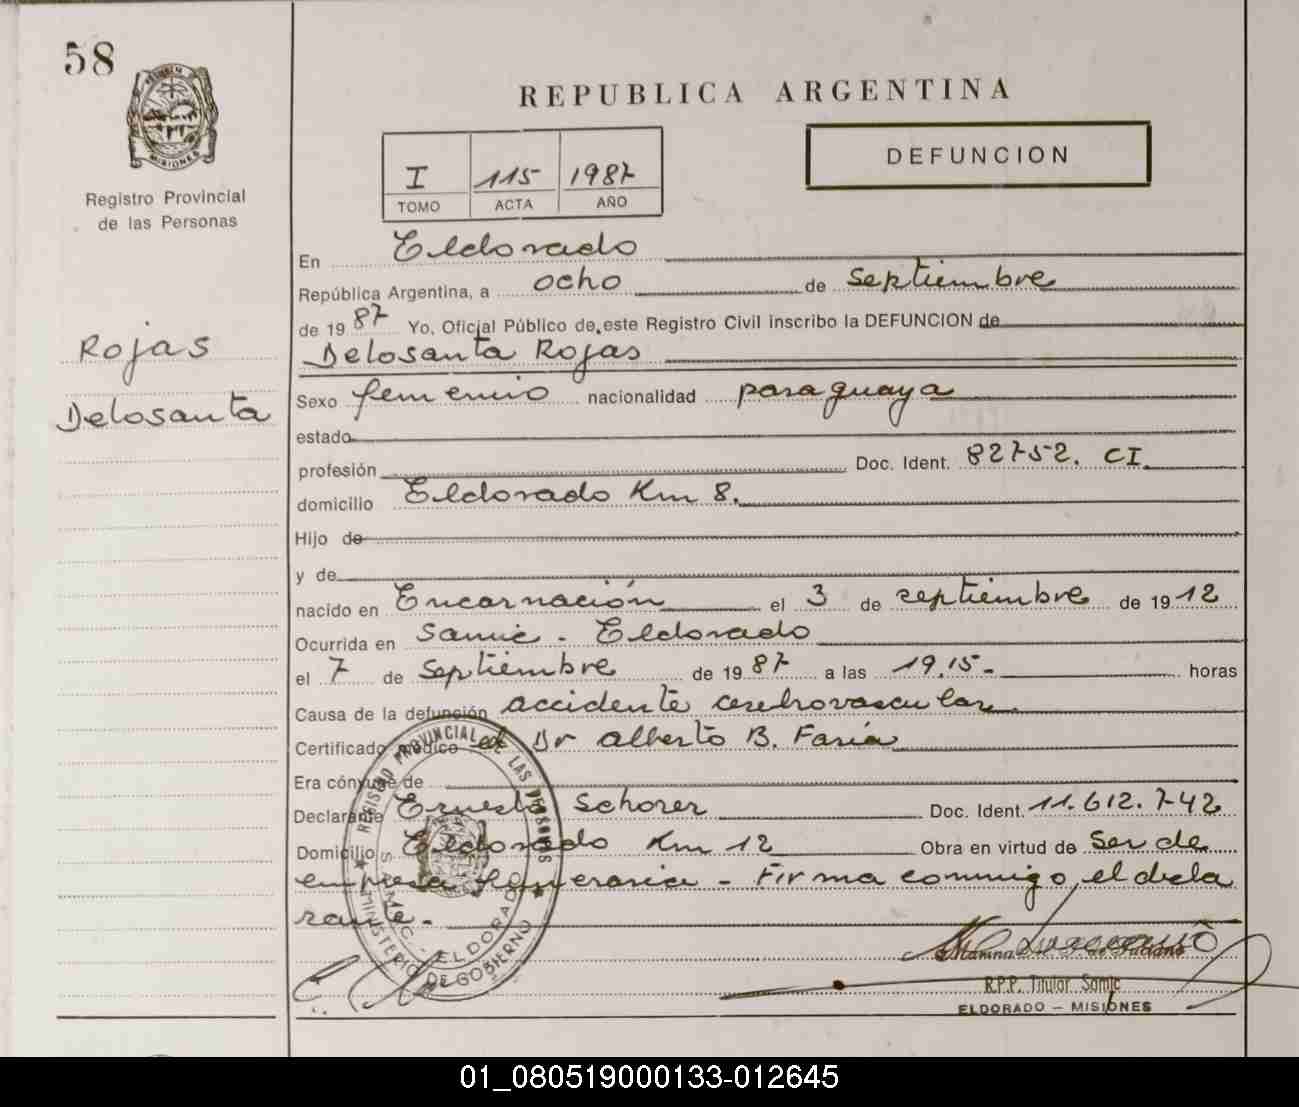 58
MISIONES
Registro Provincial
de las Personas
Rojas
Delosanta
REPUBLICA ARGENTINA
DEFUNCION
I 115 1987
TOMO ACTA AÑO
En Eldorado
República Argentina, a ocho de septiembre
de 1987 Yo, Oficial Público de este Registro Civil inscribo la DEFUNCION de
Delosanta Rojas
Sexo femenino nacionalidad paraguaya
estado
profesión Doc. Ident. 82752. CI
domicilio Eldorado Km 8.
Hijo de
y de
nacido en Encarnación el 3 de septiembre de 1912
Ocurrida en Samic - Eldorado
el 7 de septiembre de 1987 a las 19.15 - horas
Causa de la defunción accidente cerebrovascular
Certificado médico de Dr Alberto B. Faría
Era cónyuge de
Declarante Ernesto Schorer Doc. Ident. 11.612.742
Domicilio Eldorado Km 12 Obra en virtud de ser de
empresa funeraria - Firma conmigo, el decla
rante -
REGISTRO PROVINCIAL DE LAS PERSONAS
MINISTERIO DE GOBIERNO
SAMIC - ELDORADO
R.P.P. Titular Samic
ELDORADO - MISIONES
01_080519000133-012645